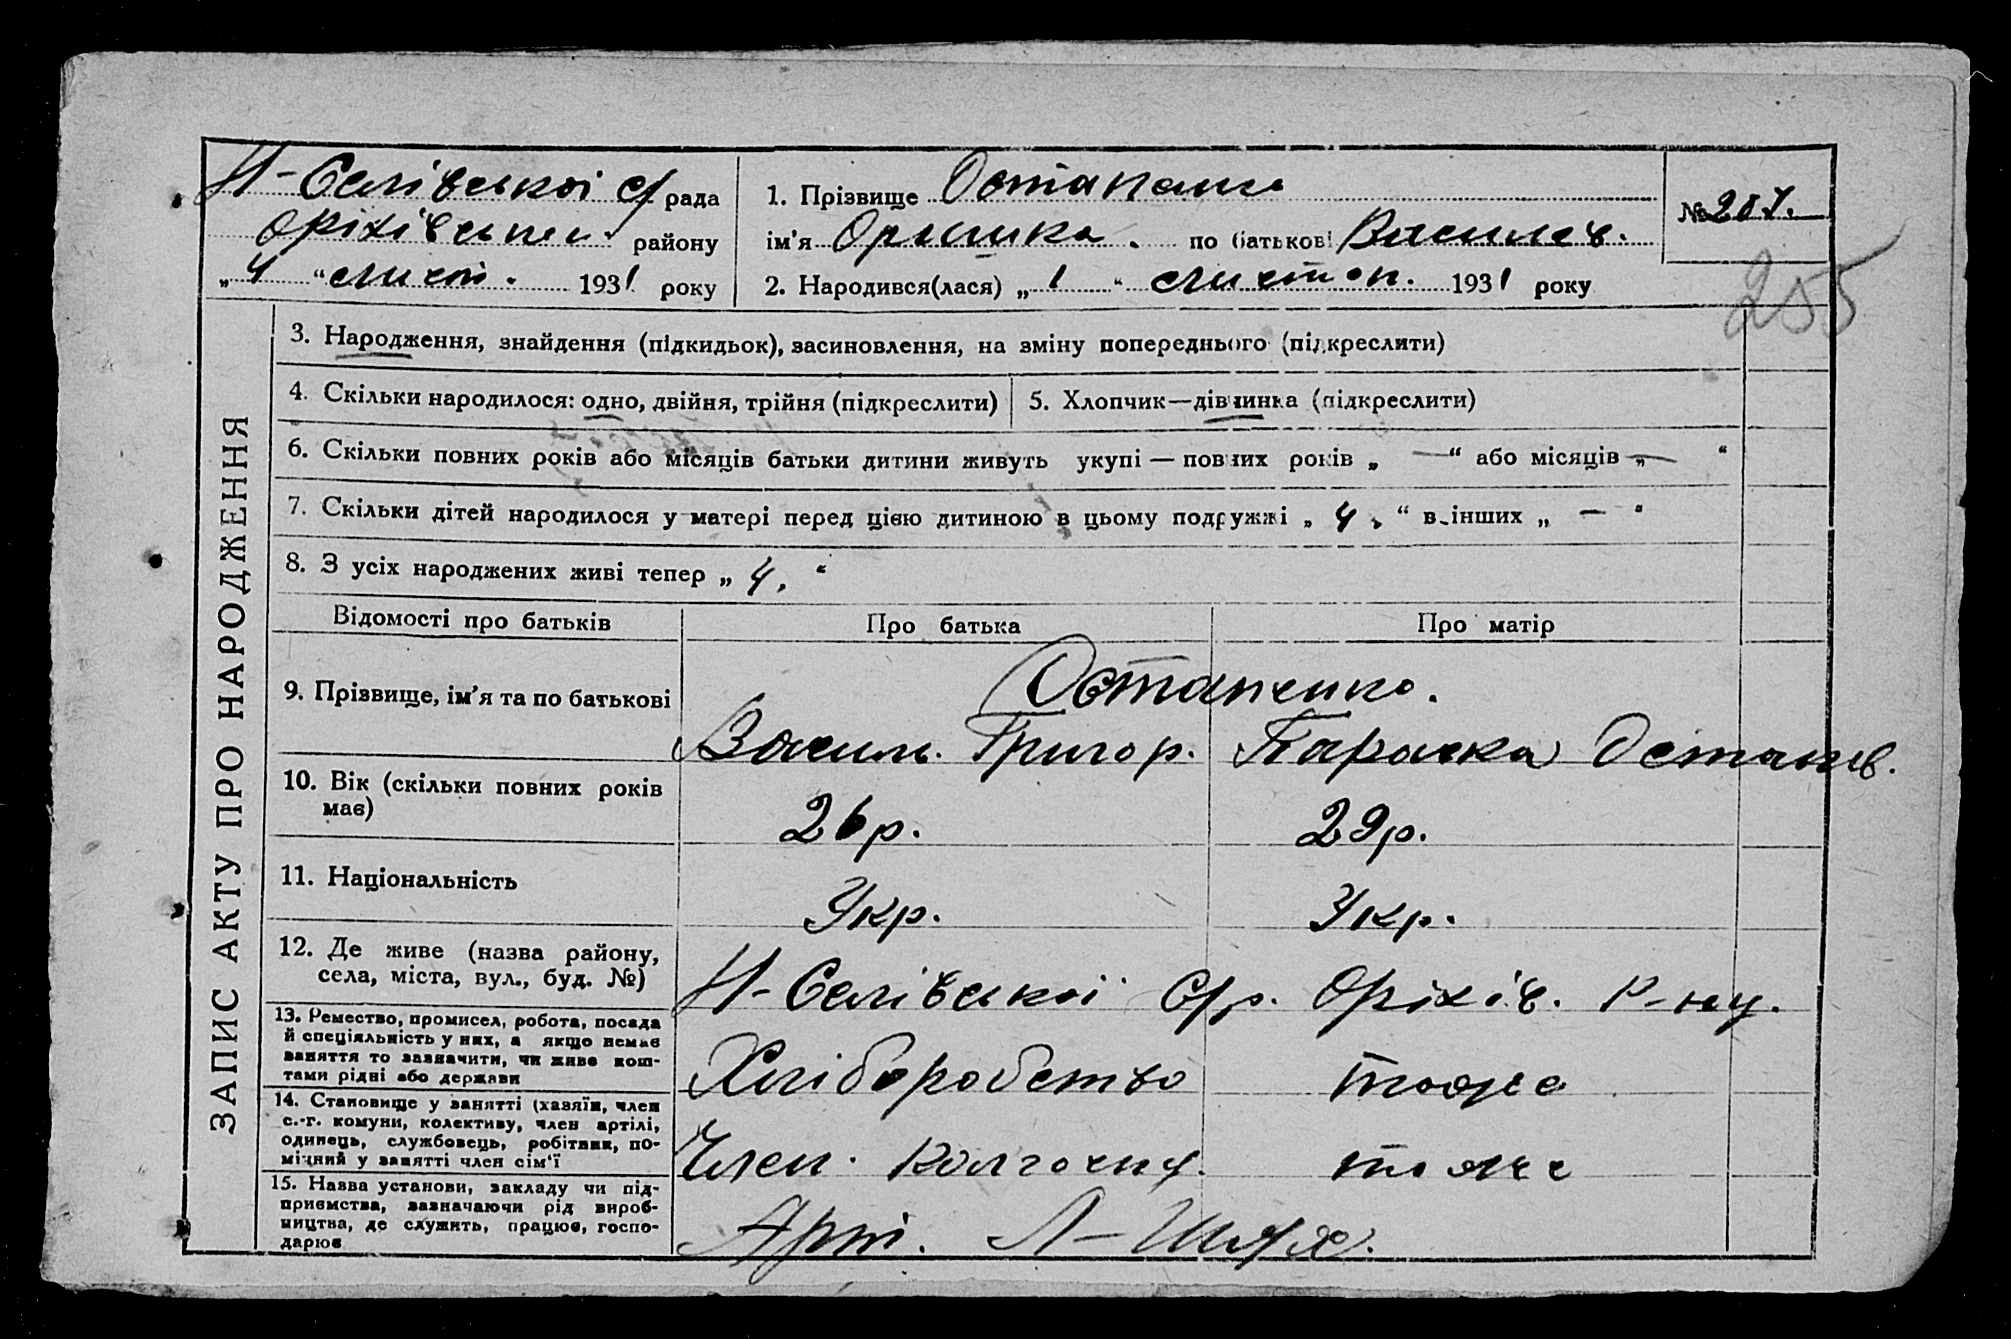 Н-Селівської с/рада
Оріхівськ. району
„4“ лист. 1931 року
1. Прізвище Остапенко
ім'я Оришка. по батькові Василів.
2. Народився(лася) „1“ листоп. 1931 року
№ 207.
255
ЗАПИС АКТУ ПРО НАРОДЖЕННЯ
3. Народження, знайдення (підкидьок), засиновлення, на зміну попереднього (підкреслити)
4. Скільки народилося: одно, двійня, трійня (підкреслити)
5. Хлопчик—дівчинка (підкреслити)
6. Скільки повних років або місяців батьки дитини живуть укупі — повних років „ — “ або місяців „ — “
7. Скільки дітей народилося у матері перед цією дитиною в цьому подружжі „ 4. “ в інших „ — “
8. З усіх народжених живі тепер „ 4. “
Відомості про батьків
Про батька
Про матір
9. Прізвище, ім'я та по батькові
Остапенко.
Василь. Григор. Параска Остапів.
10. Вік (скільки повних років
має)
26 р. 29 р.
11. Національність
Укр. Укр.
12. Де живе (назва району,
села, міста, вул., буд. №)
Н-Селівської С/р. Оріхів. Р-ну.
13. Ремество, промисел, робота, посада
й спеціяльність у них, а якщо немає
заняття то зазначити, чи живе кош-
тами рідні або держави
Хліборобство тоже
14. Становище у занятті (хазяїн, член
с.-г. комуни, колективу, член артілі,
одинець, службовець, робітник, по-
мічний у занятті член сім'ї
Член. колгоспу. тоже
15. Назва установи, закладу чи під-
приємства, зазначаючи рід вироб-
ництва, де служить, працює, госпо-
дарює
Арт. Л-Шлях.